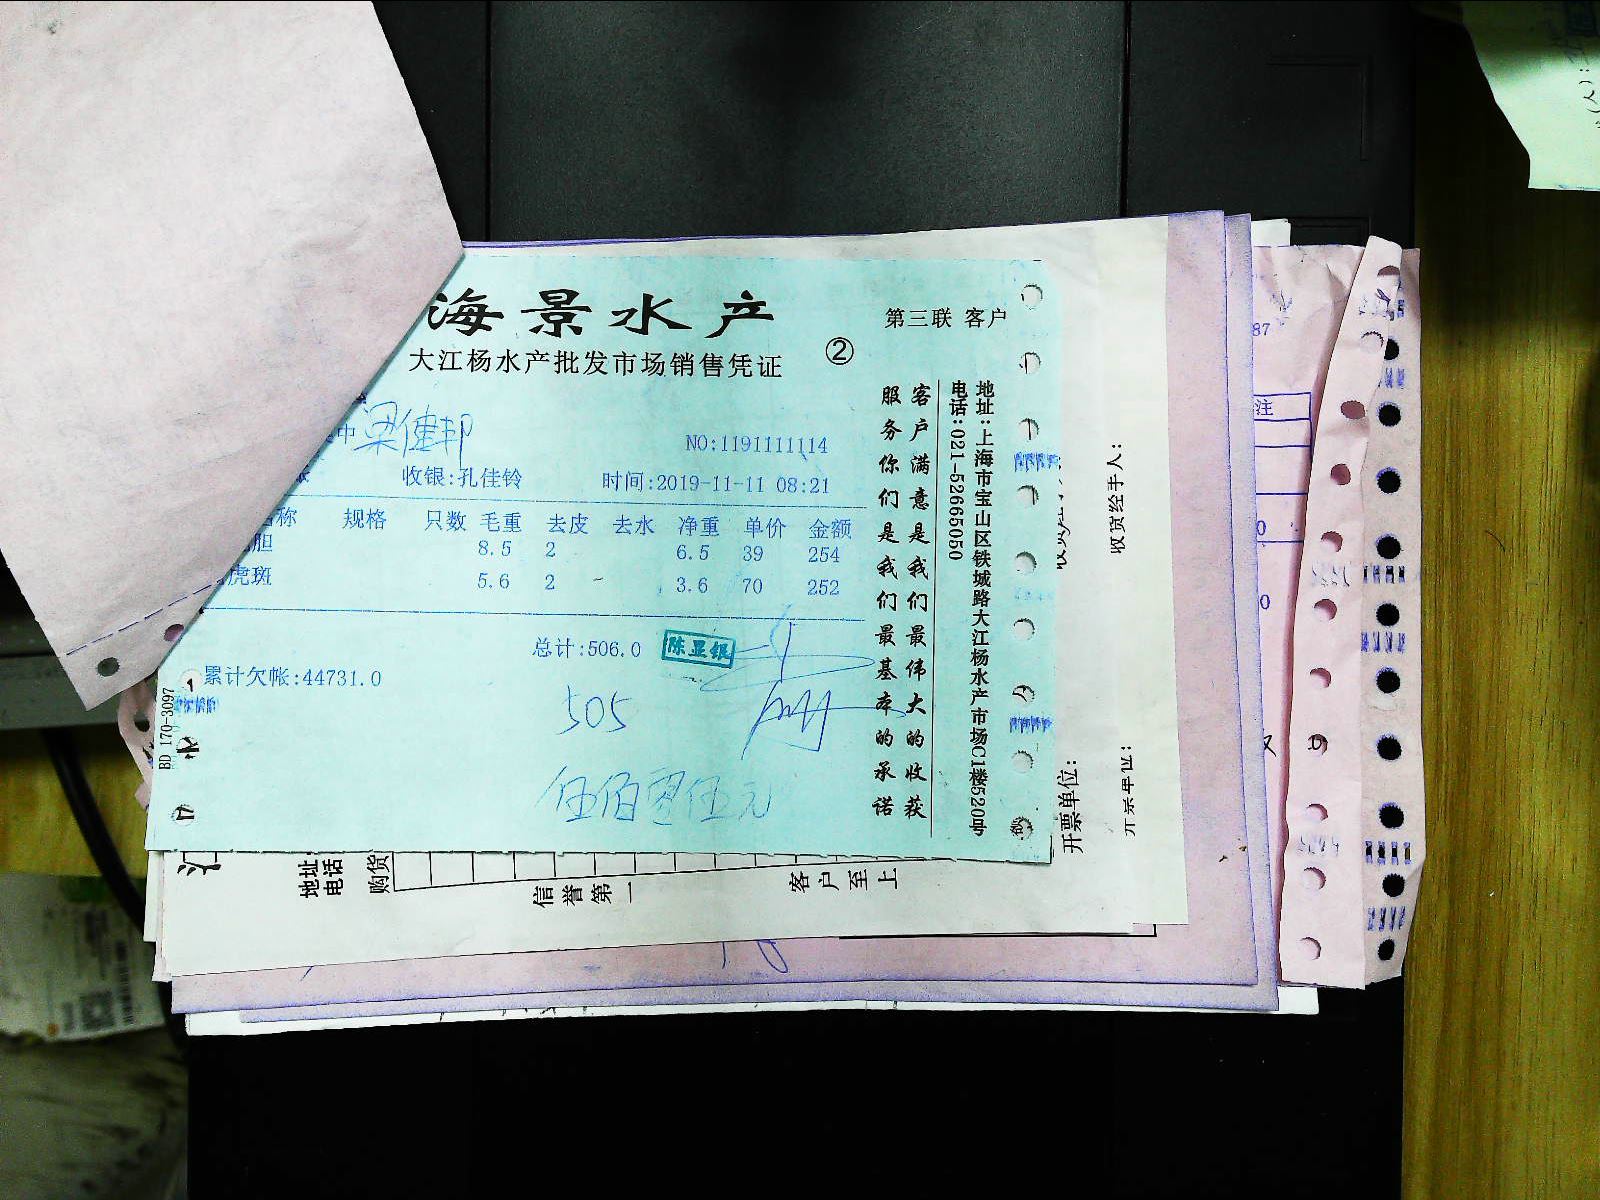 海景水产
第三联 客户
大江杨水产批发市场销售凭证
②
中 梁健邦
NO:1191111114
收银:孔佳铃
时间:2019-11-11 08:21
称 规格 只数 毛重 去皮 去水 净重 单价 金额
胆 8.5 2 6.5 39 254
虎斑 5.6 2 3.6 70 252
总计:506.0
陈显银
累计欠帐:44731.0
505
伍佰零伍元
BD 170-3097
客户满意是我们最伟大的收获
服务你们是我们最基本的承诺
地址:上海市宝山区铁城路大江杨水产市场C1楼520号
电话:021-52665050
收货经手人:
开票单位:
地址
电话
购货
信誉第一
客户至上
87
注
0
0
(人):